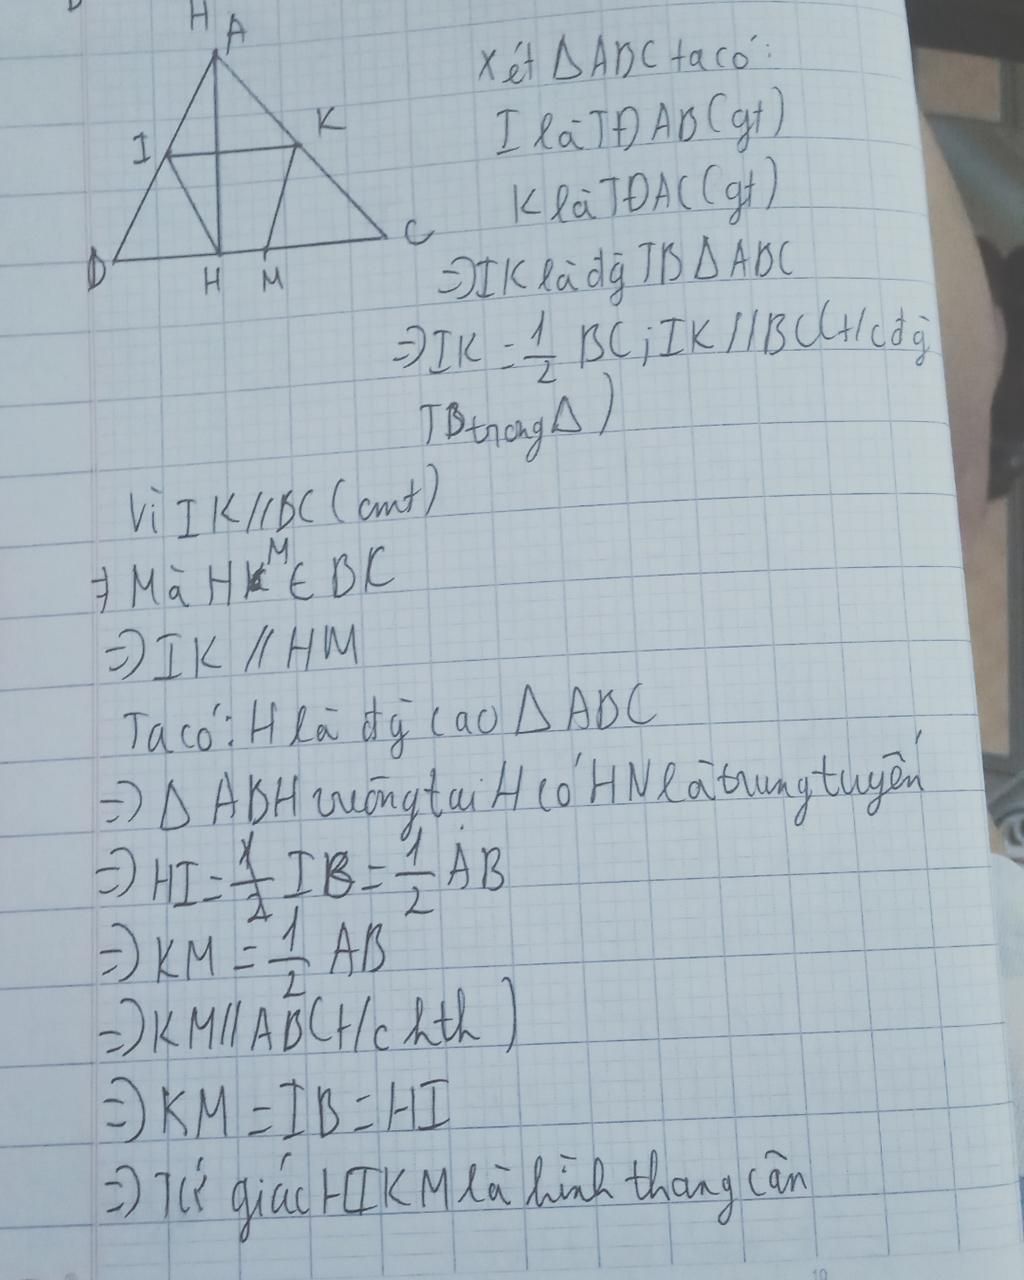 H
A
I
K
B
H
M
C
Xét ΔABC ta có:
I là TĐ AB (gt)
K là TĐ AC (gt)
=> IK là đg TB Δ ABC
=> IK = 1/2 BC ; IK // BC (t/c đg
TB trong Δ)
Vì IK // BC (cmt)
Mà HM ∈ BC
=> IK // HM
Ta có: H là đg cao Δ ABC
=> Δ ABH vuông tại H có HN là trung tuyến
=> HI = 1/2 IB = 1/2 AB
=> KM = 1/2 AB
=> KM // AB (t/c hth)
=> KM = IB = HI
=> Tứ giác HIKM là hình thang cân